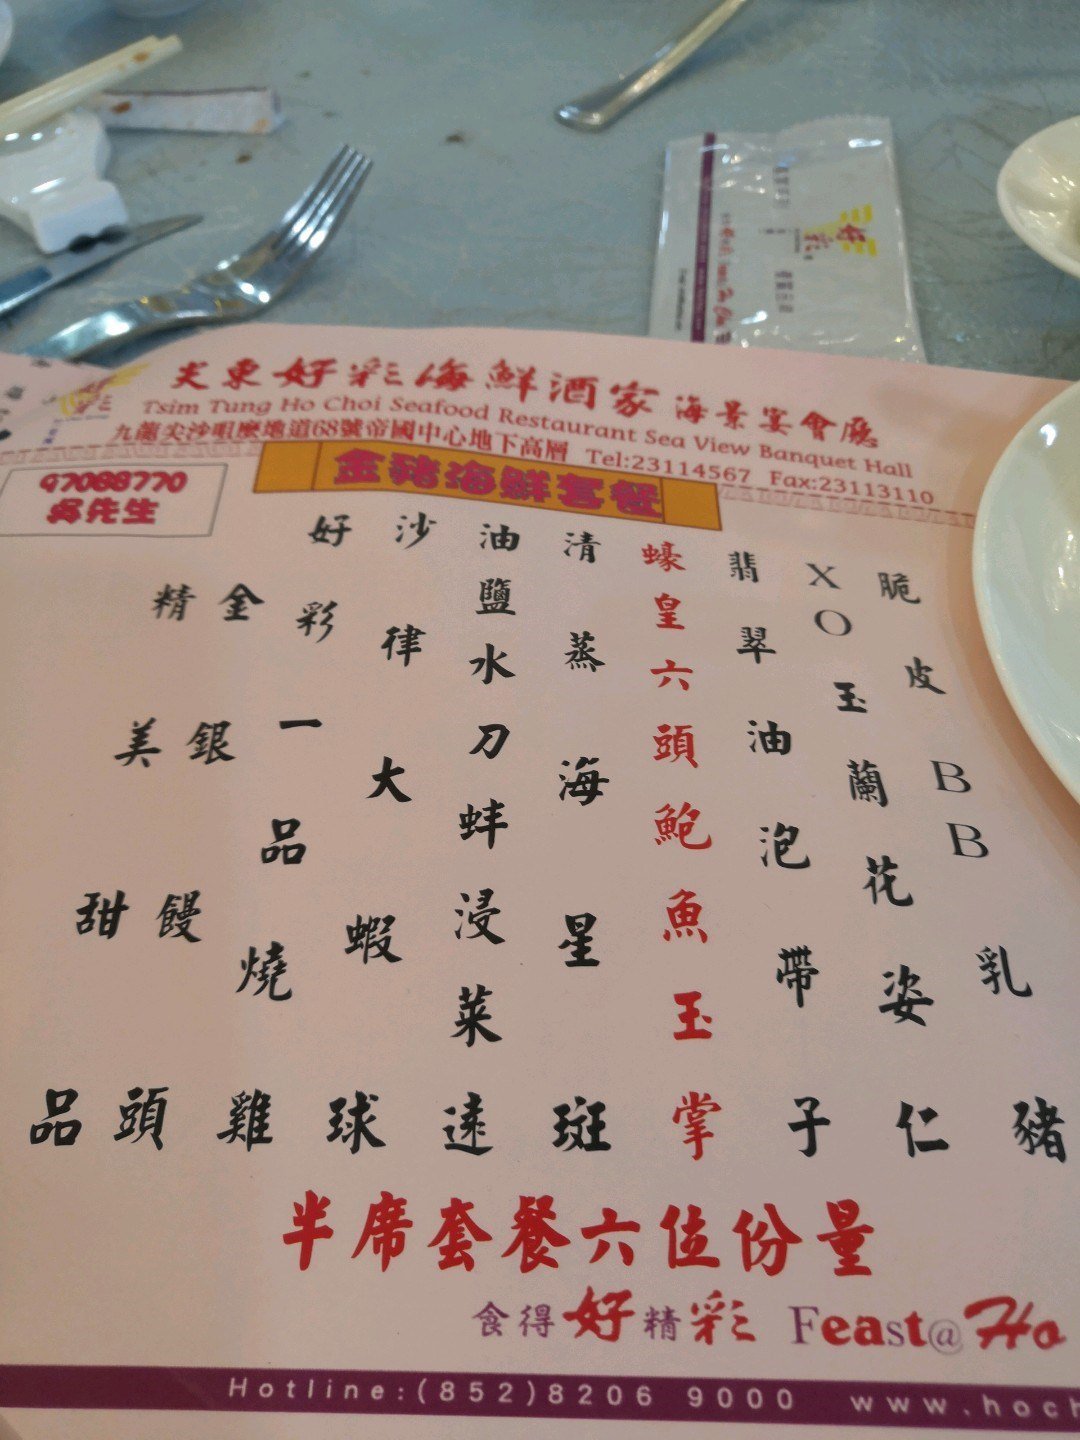 尖東好彩海鮮酒家 海景宴會廳
Tsim Tung Ho Choi Seafood Restaurant Sea View Banquet Hall
九龍尖沙咀麼地道68號帝國中心地下高層 Tel:23114567 Fax:23113110
97088770
吳先生
金豬海鮮套餐
脆皮BB乳豬
XO玉蘭花姿仁
翡翠油泡帶子
蠔皇六頭鮑魚玉掌
清蒸海星斑
油鹽水刀蚌浸菜遠
沙律大蝦球
好彩一品燒雞
金銀饅頭
精美甜品
半席套餐六位份量
食得好精彩 Feast@Ho
Hotline:(852)8206 9000 www.hoch